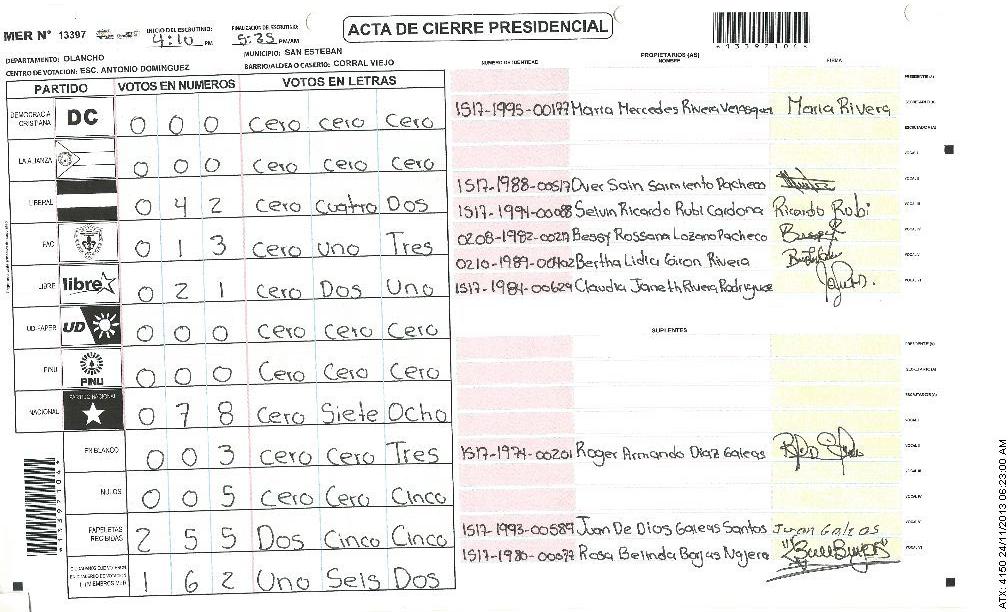 ACTA DE CIERRE PRESIDENCIAL
MER N° 13397
INICIO DEL ESCRUTINIO: 4:10 PM
FINALIZACION DE ESCRUTINIO: 5:35 PM/AM
*13397104*
DEPARTAMENTO: OLANCHO
MUNICIPIO: SAN ESTEBAN
CENTRO DE VOTACION: ESC. ANTONIO DOMINGUEZ
BARRIO/ALDEA O CASERIO: CORRAL VIEJO
PARTIDO VOTOS EN NUMEROS VOTOS EN LETRAS
DEMOCRACIA CRISTIANA DC 0 0 0 Cero Cero Cero
LA ALIANZA 0 0 0 Cero Cero Cero
LIBERAL 0 4 2 Cero Cuatro Dos
FAC 0 1 3 Cero Uno Tres
LIBRE libre 0 2 1 Cero Dos Uno
UD-FAPER UD 0 0 0 Cero Cero Cero
PINU PINU 0 0 0 Cero Cero Cero
NACIONAL PARTIDO NACIONAL 0 7 8 Cero Siete Ocho
EN BLANCO 0 0 3 Cero Cero Tres
NULOS 0 0 5 Cero Cero Cinco
PAPELETAS RECIBIDAS 2 5 5 Dos Cinco Cinco
1 6 2 Uno Seis Dos
*13397104*
PROPIETARIOS (AS)
NUMERO DE IDENTIDAD NOMBRE FIRMA
PRESIDENTE(A)
1517-1995-00177 Maria Mercedes Rivera Velasquez Maria Rivera SECRETARIO(A)
ESCRUTADOR(A)
VOCAL I
1517-1988-00517 Over Sain Sarmiento Pacheco VOCAL II
1517-1994-00088 Selvin Ricardo Rubi Cardona Ricardo Rubi VOCAL III
0208-1982-00217 Bessy Rossana Lozano Pacheco VOCAL IV
0210-1989-00402 Bertha Lidia Giron Rivera VOCAL V
1517-1984-00629 Claudia Janeth Rivera Rodriguez VOCAL VI
SUPLENTES
PRESIDENTE(A)
SECRETARIO(A)
ESCRUTADOR(A)
VOCAL I
1517-1974-00201 Roger Armando Diaz Galeas VOCAL II
VOCAL III
VOCAL IV
1517-1993-00589 Juan De Dios Galeas Santos Juan Galeas VOCAL V
1517-1980-00077 Rosa Belinda Borjas Najera VOCAL VI
ATX: 4150 24/11/2013 06:23:00 AM